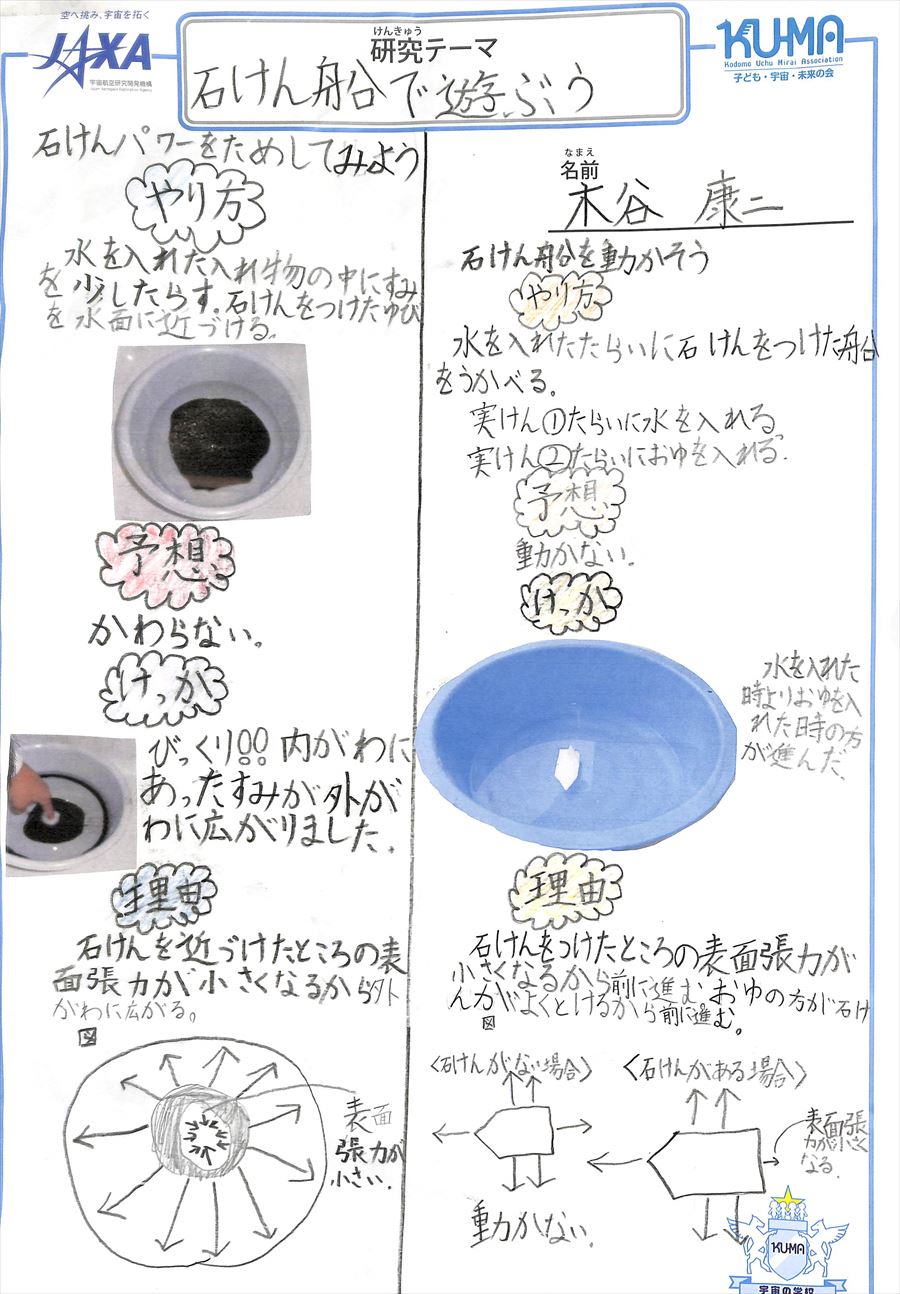 空へ挑み、宇宙を拓く
JAXA
宇宙航空研究開発機構
Japan Aerospace Exploration Agency
けんきゅう
研究テーマ
石けん船で遊ぶう
KU-MA
Kodomo Uchu Mirai Association
子ども・宇宙・未来の会
石けんパワーをためしてみよう
やり方
水を入れた入れ物の中にすみ
を少したらす。石けんをつけたゆび
を水面に近づける。
予想
かわらない。
けっか
びっくり!! 内がわに
あったすみが外が
わに広がりました。
理由
石けんを近づけたところの表
面張力が小さくなるから外
がわに広がる。
図
表面
張力が
小さい.
なまえ
名前
木谷 康二
石けん船を動かそう
やり方
水を入れたたらいに石けんをつけた船
をうかべる。
実けん①たらいに水を入れる
実けん②たらいにおゆを入れる.
予想
動かない.
けっか
水を入れた
時よりおゆを入
れた時の方
が進んだ.
理由
石けんをつけたところの表面張力が
小さくなるから前に進む おゆの方が石け
んがよくとけるから前に進む。
図
〈石けんがない場合〉
動かない.
〈石けんがある場合〉
表面張
力が小さく
なる.
KUMA
宇宙の学校